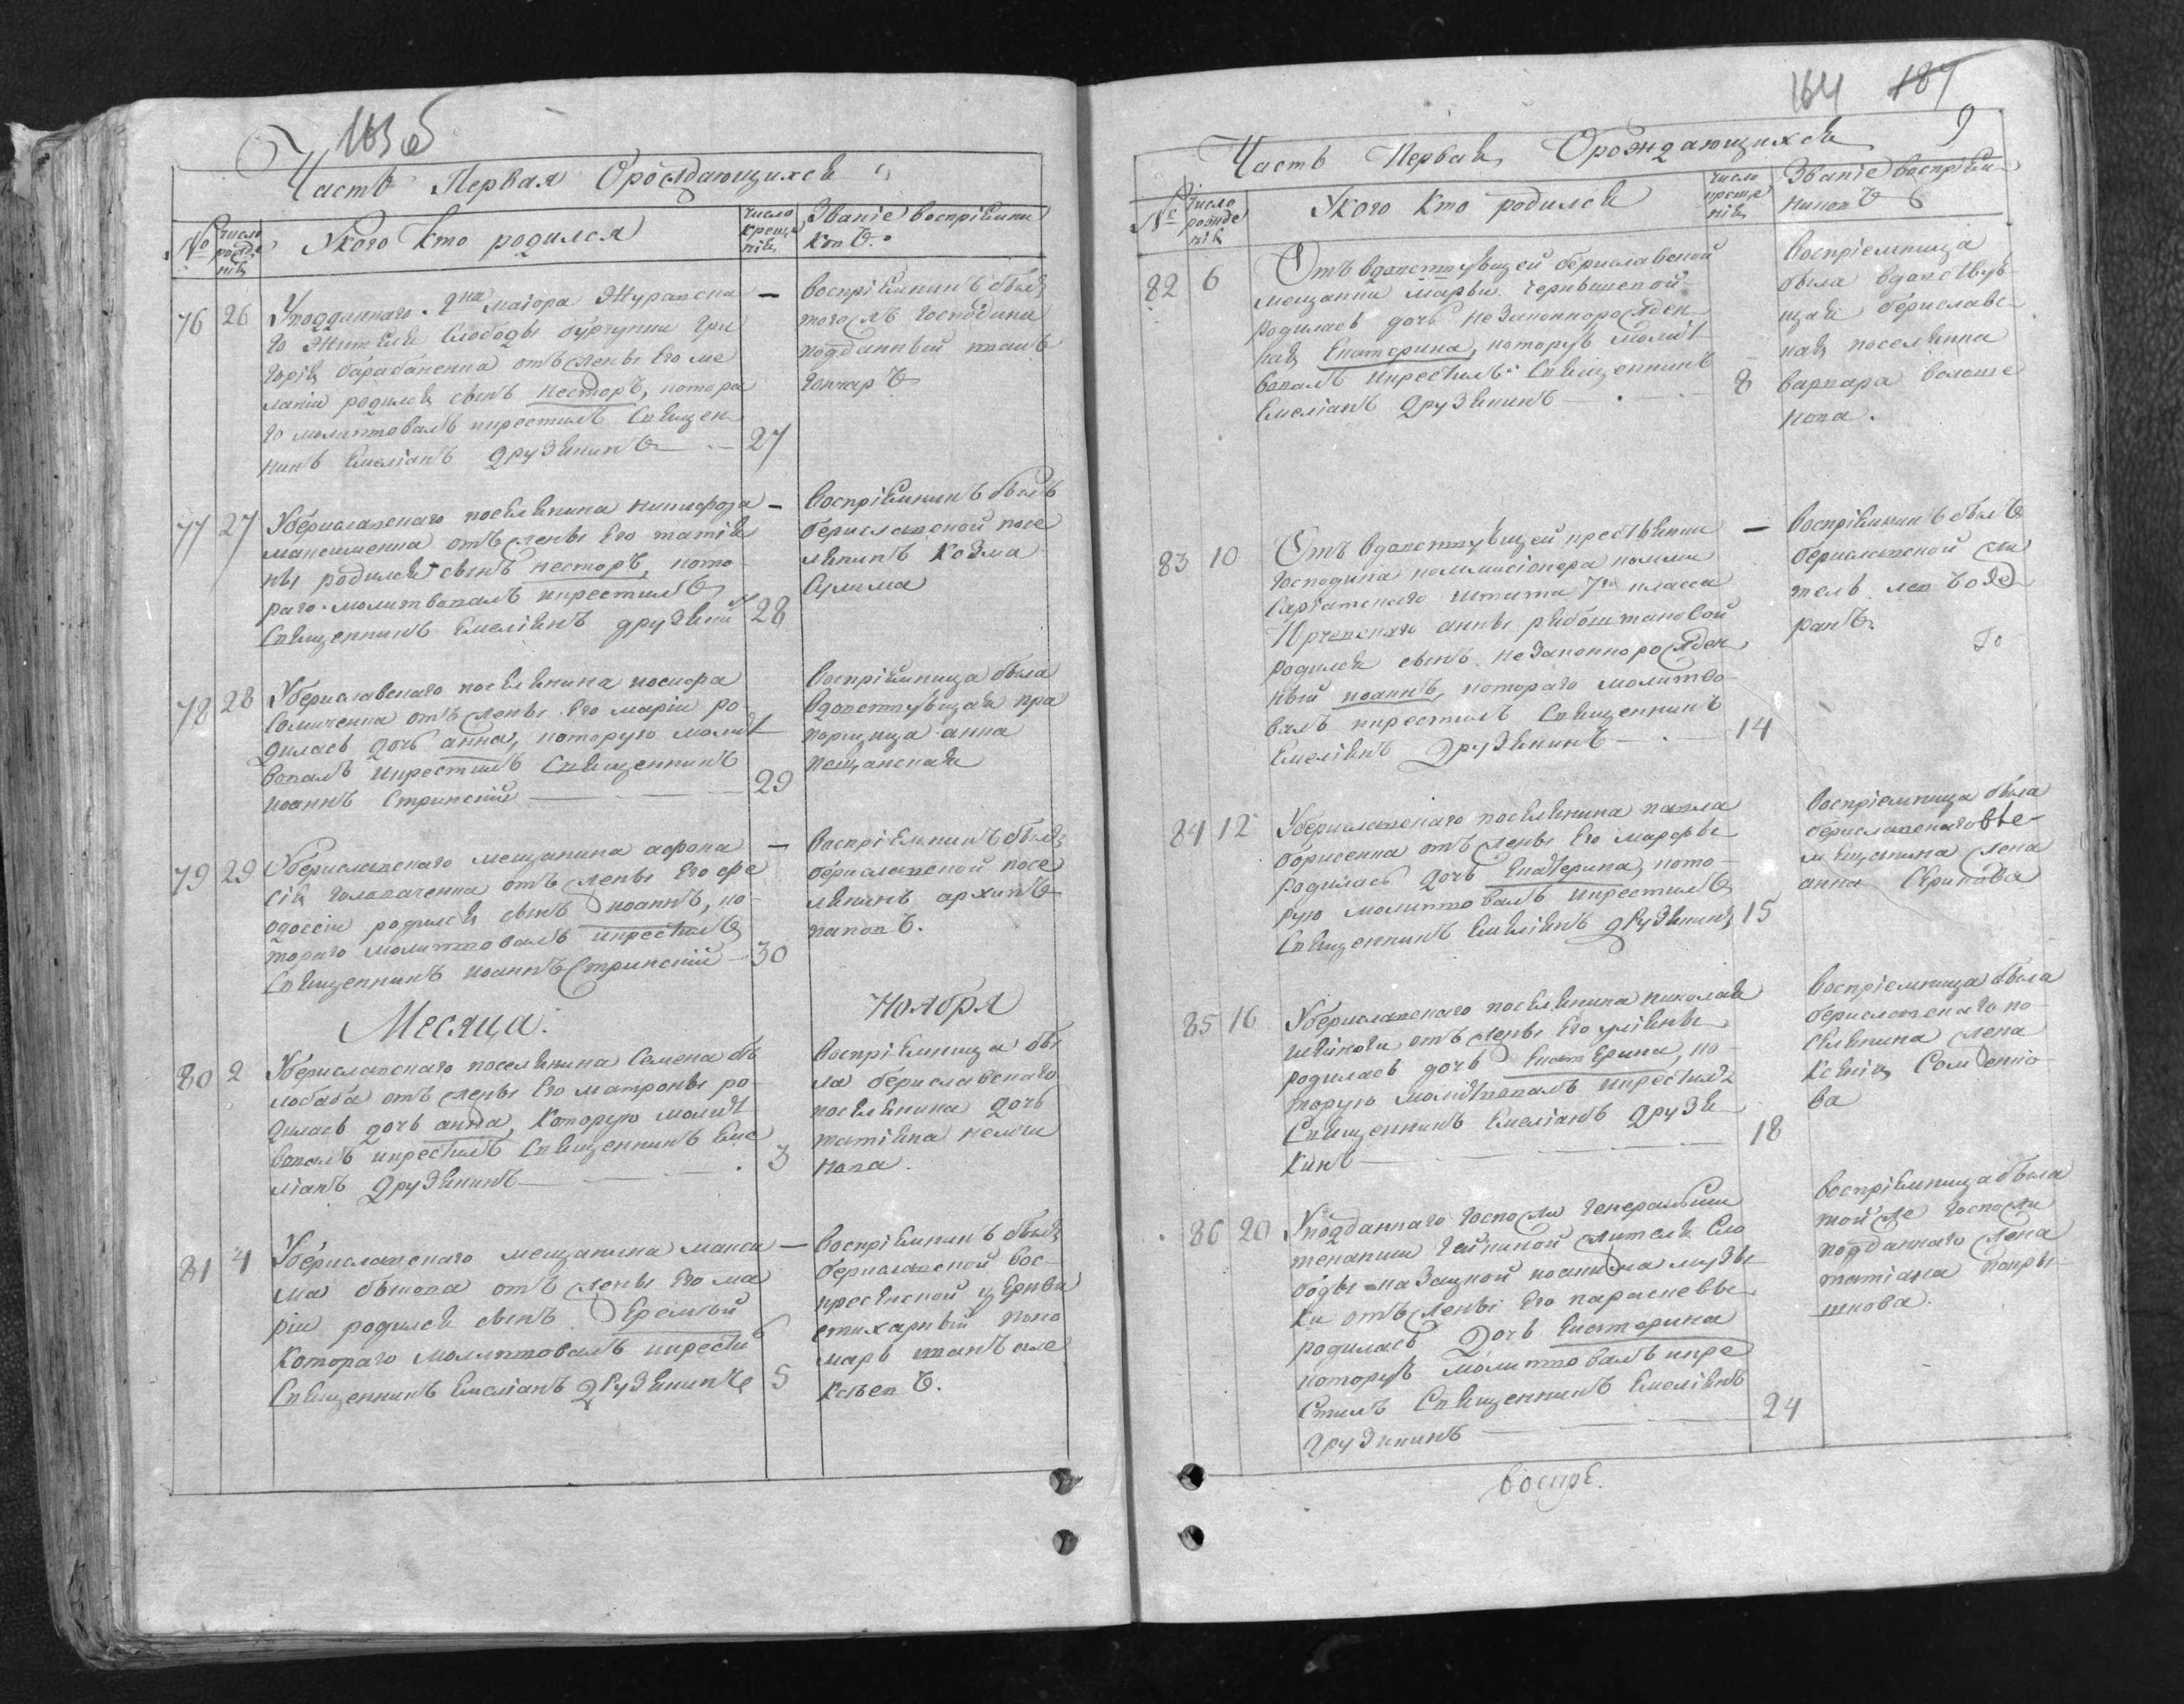 163 об
Часть Первая О рождающихся
№ число рожде нія
У кого Кто родился
число креще нія
Званіе воспріемни ковъ.
76 26 У подданнаго Гдна маіора Журавска
го жителя слободы бургунки Гри
горія барабаненка отъ жены Его ме
ланіи родился сынъ несторъ, котора
го молитвовалъ икрестилъ Священ
никъ Емеліанъ Друзякинъ 27
воспріемникъ былъ
того жъ Господина
подданный иванъ
гончаръ
77 27 У бериславскаго поселянина никифора
максименка отъ жены Его татія
ны родился сынъ несторъ, кото
раго молитвовалъ икрестилъ
Священникъ Емеліянъ друзякинъ 28
Воспріемникъ былъ
бериславской посе
лянинъ Козма
Сулима
78 28 У бериславскаго поселянина иосифа
отъ жены Его маріи ро
дилась дочь анна, которую молит
вовалъ икрестилъ Священникъ
иоаннъ Стринскій 29
Воспріемница была
вдовствующая пра
порщица анна
пещанская
79 29 У бериславскаго мещанина афона
сія головаченка отъ жены Его фе
одосіи родился сынъ иоаннъ, ко
тораго молитвовалъ икрестилъ
Священникъ иоаннъ Стринскій 30
воспріемникъ былъ
бериславской посе
лянинъ архипъ
паповъ.
Месяца. Ноября
80 2 У бериславскаго поселянина Семена бѣ
лобаба отъ жены Его матроны ро
дилась дочь анна, Которую молит
вовалъ икрестилъ Священникъ Еме
ліанъ Друзякинъ 3
воспріемница бы
ла бериславскаго
поселянина дочь
татіяна
нова.
81 4 У бериславскаго мещанина макси
ма бѣкова отъ жены Его ма
ріи родился сынъ Еремѣй
Котораго молитвовалъ икрестилъ
Священникъ Емеліанъ Друзякинъ 5
Воспріемникъ былъ
бериславской вос
кресенской церкви
стихарный поно
марь иванъ але
ксѣевъ.
164 187
9
Часть Первая О рождающихся
№ число рожде нія
У кого Кто родился
число креще нія
Званіе воспріем никовъ
82 6 Отъ вдовствующей бериславской
мещанки Марѳы Чернвинской
родилась дочь не законнорожден
ная Екатерина, которую молит
вовалъ икрестилъ Священникъ
Емеліанъ Друзякинъ 8
Воспріемница
была вдовствую
щая берислав
кая поселянка
варвара волоше
нова.
83 10 Отъ вдовствующей крестьянки
Господина коммисіонера комми
саріатскаго штата 7го класса
Юрченскаго анны рябоштановой
родился сынъ не законнорожден
ный иоаннъ, котораго молитво
валъ икрестилъ Священникъ
Емеліянъ Друзякинъ 14
Воспріемникъ былъ
бериславской жи
тель левъ
ранъ.
84 12 У бериславскаго поселянина павла
борисенка отъ жены Его марфы
родилась дочь Екатерина, кото
рую молитвовалъ икрестилъ
Священникъ Емеліянъ друзякинъ 15
Воспріемница была
бериславскаго
мещанина жена
анна
85 16 У бериславскаго поселянина николая
отъ жены Его уліяны
родилась дочь Екатерина, ко
торую молитвовалъ икрестилъ
Священникъ Емеліанъ Друзя
кинъ 18
Воспріемница была
бериславскаго по
селянина жена
Ксенія
ва
86 20 У подданнаго Госпожи Генеральши
тенанши Гейкиной жителя Сло
боды казацкой иоакима музы
ки отъ жены Его параскевы
родилась дочь Екатерина
которую молитвовалъ икре
стилъ Священникъ Емеліянъ
друзякинъ 24
воспріемница была
той же Госпожи
подданнаго жена
татіана
шкова.
воспре.